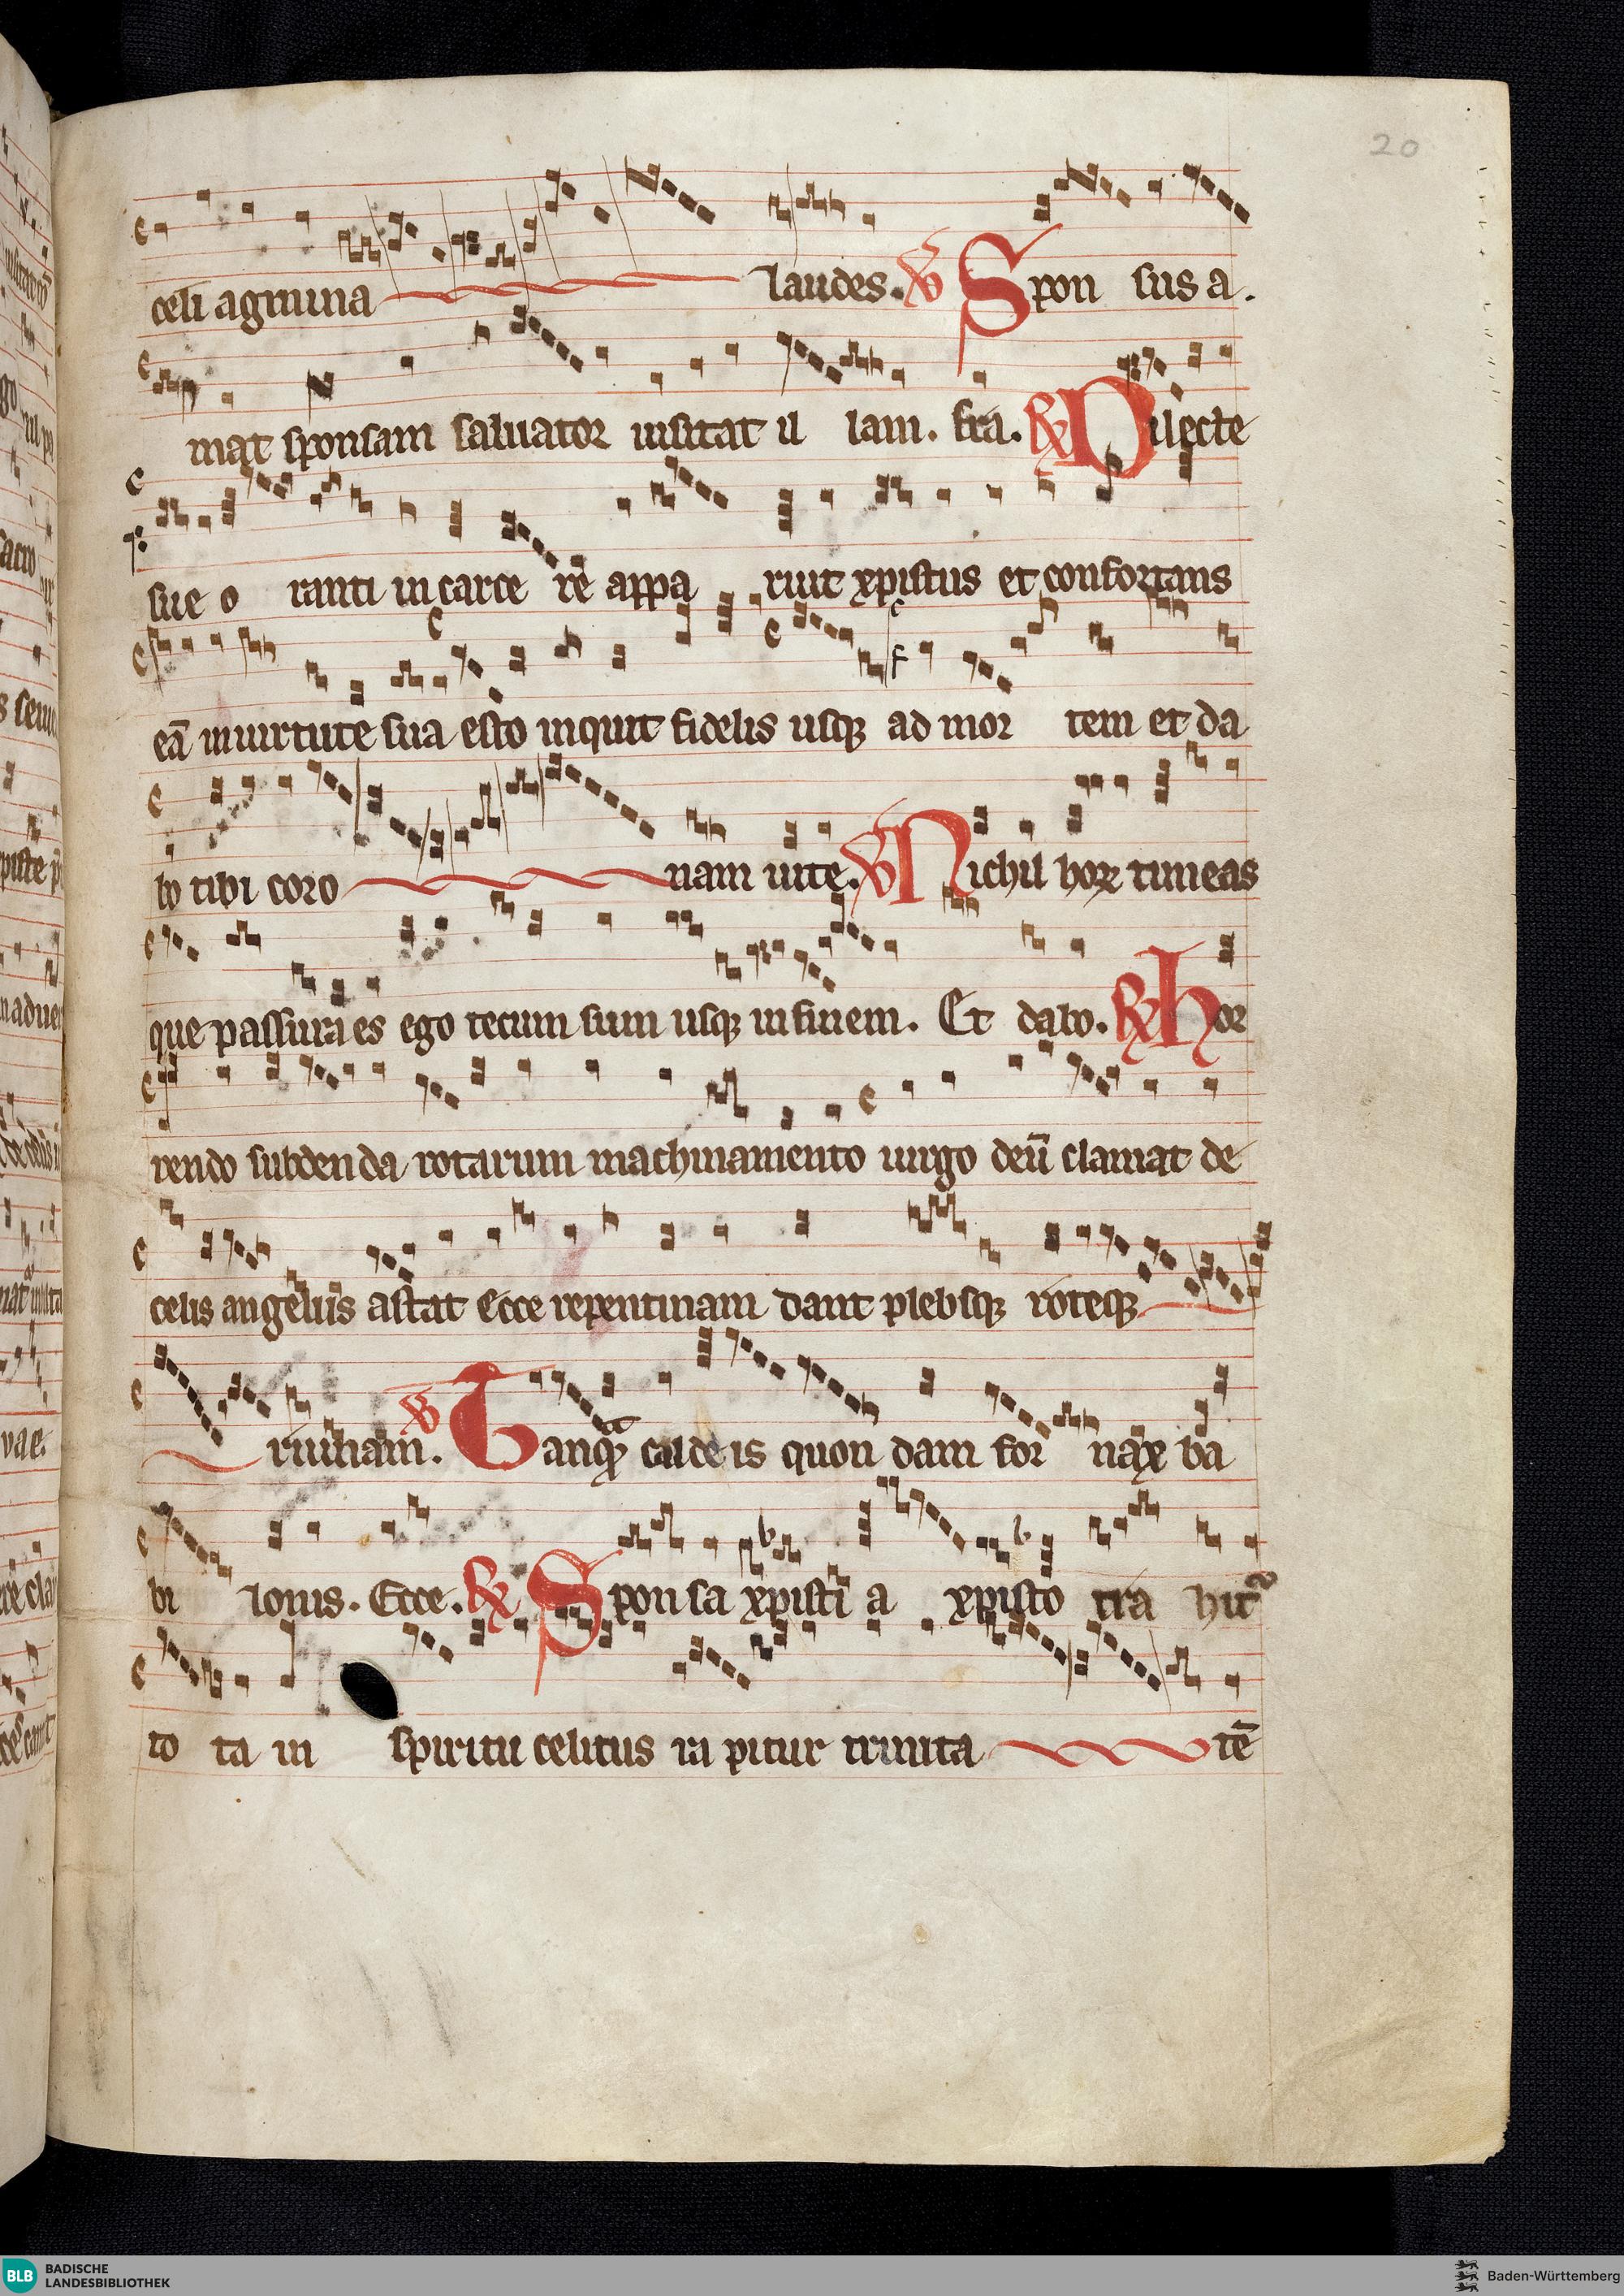 20
celi agmina laudes. V Spon sus a.
mat sponsam saluator uisitat il lam. fra. R Dilecte
sue o ranti in carce re appa ruit xpistus et confortans
eā in uirtute sua esto inquit fidelis usqꝫ ad mor tem et da
bo tibi coro nam uite. V Nichil hoꝝ timeas
que passura es ego tecum sum usqꝫ in finem. Et dabo. R hor
rendo subdenda rotarum machinamento uirgo deū clamat de
celis angelus astat Ecce repentinam dant plebsqꝫ roteqꝫ
ruinam. V Tanqꝫ caldeis quon dam for nax ba
bi lonis. Ecce. R Spon sa xpisti a xpisto tra hit᷑
to ta in spiritu celitus ra pitur trinita tē
BLB BADISCHE LANDESBIBLIOTHEK
Baden-Württemberg